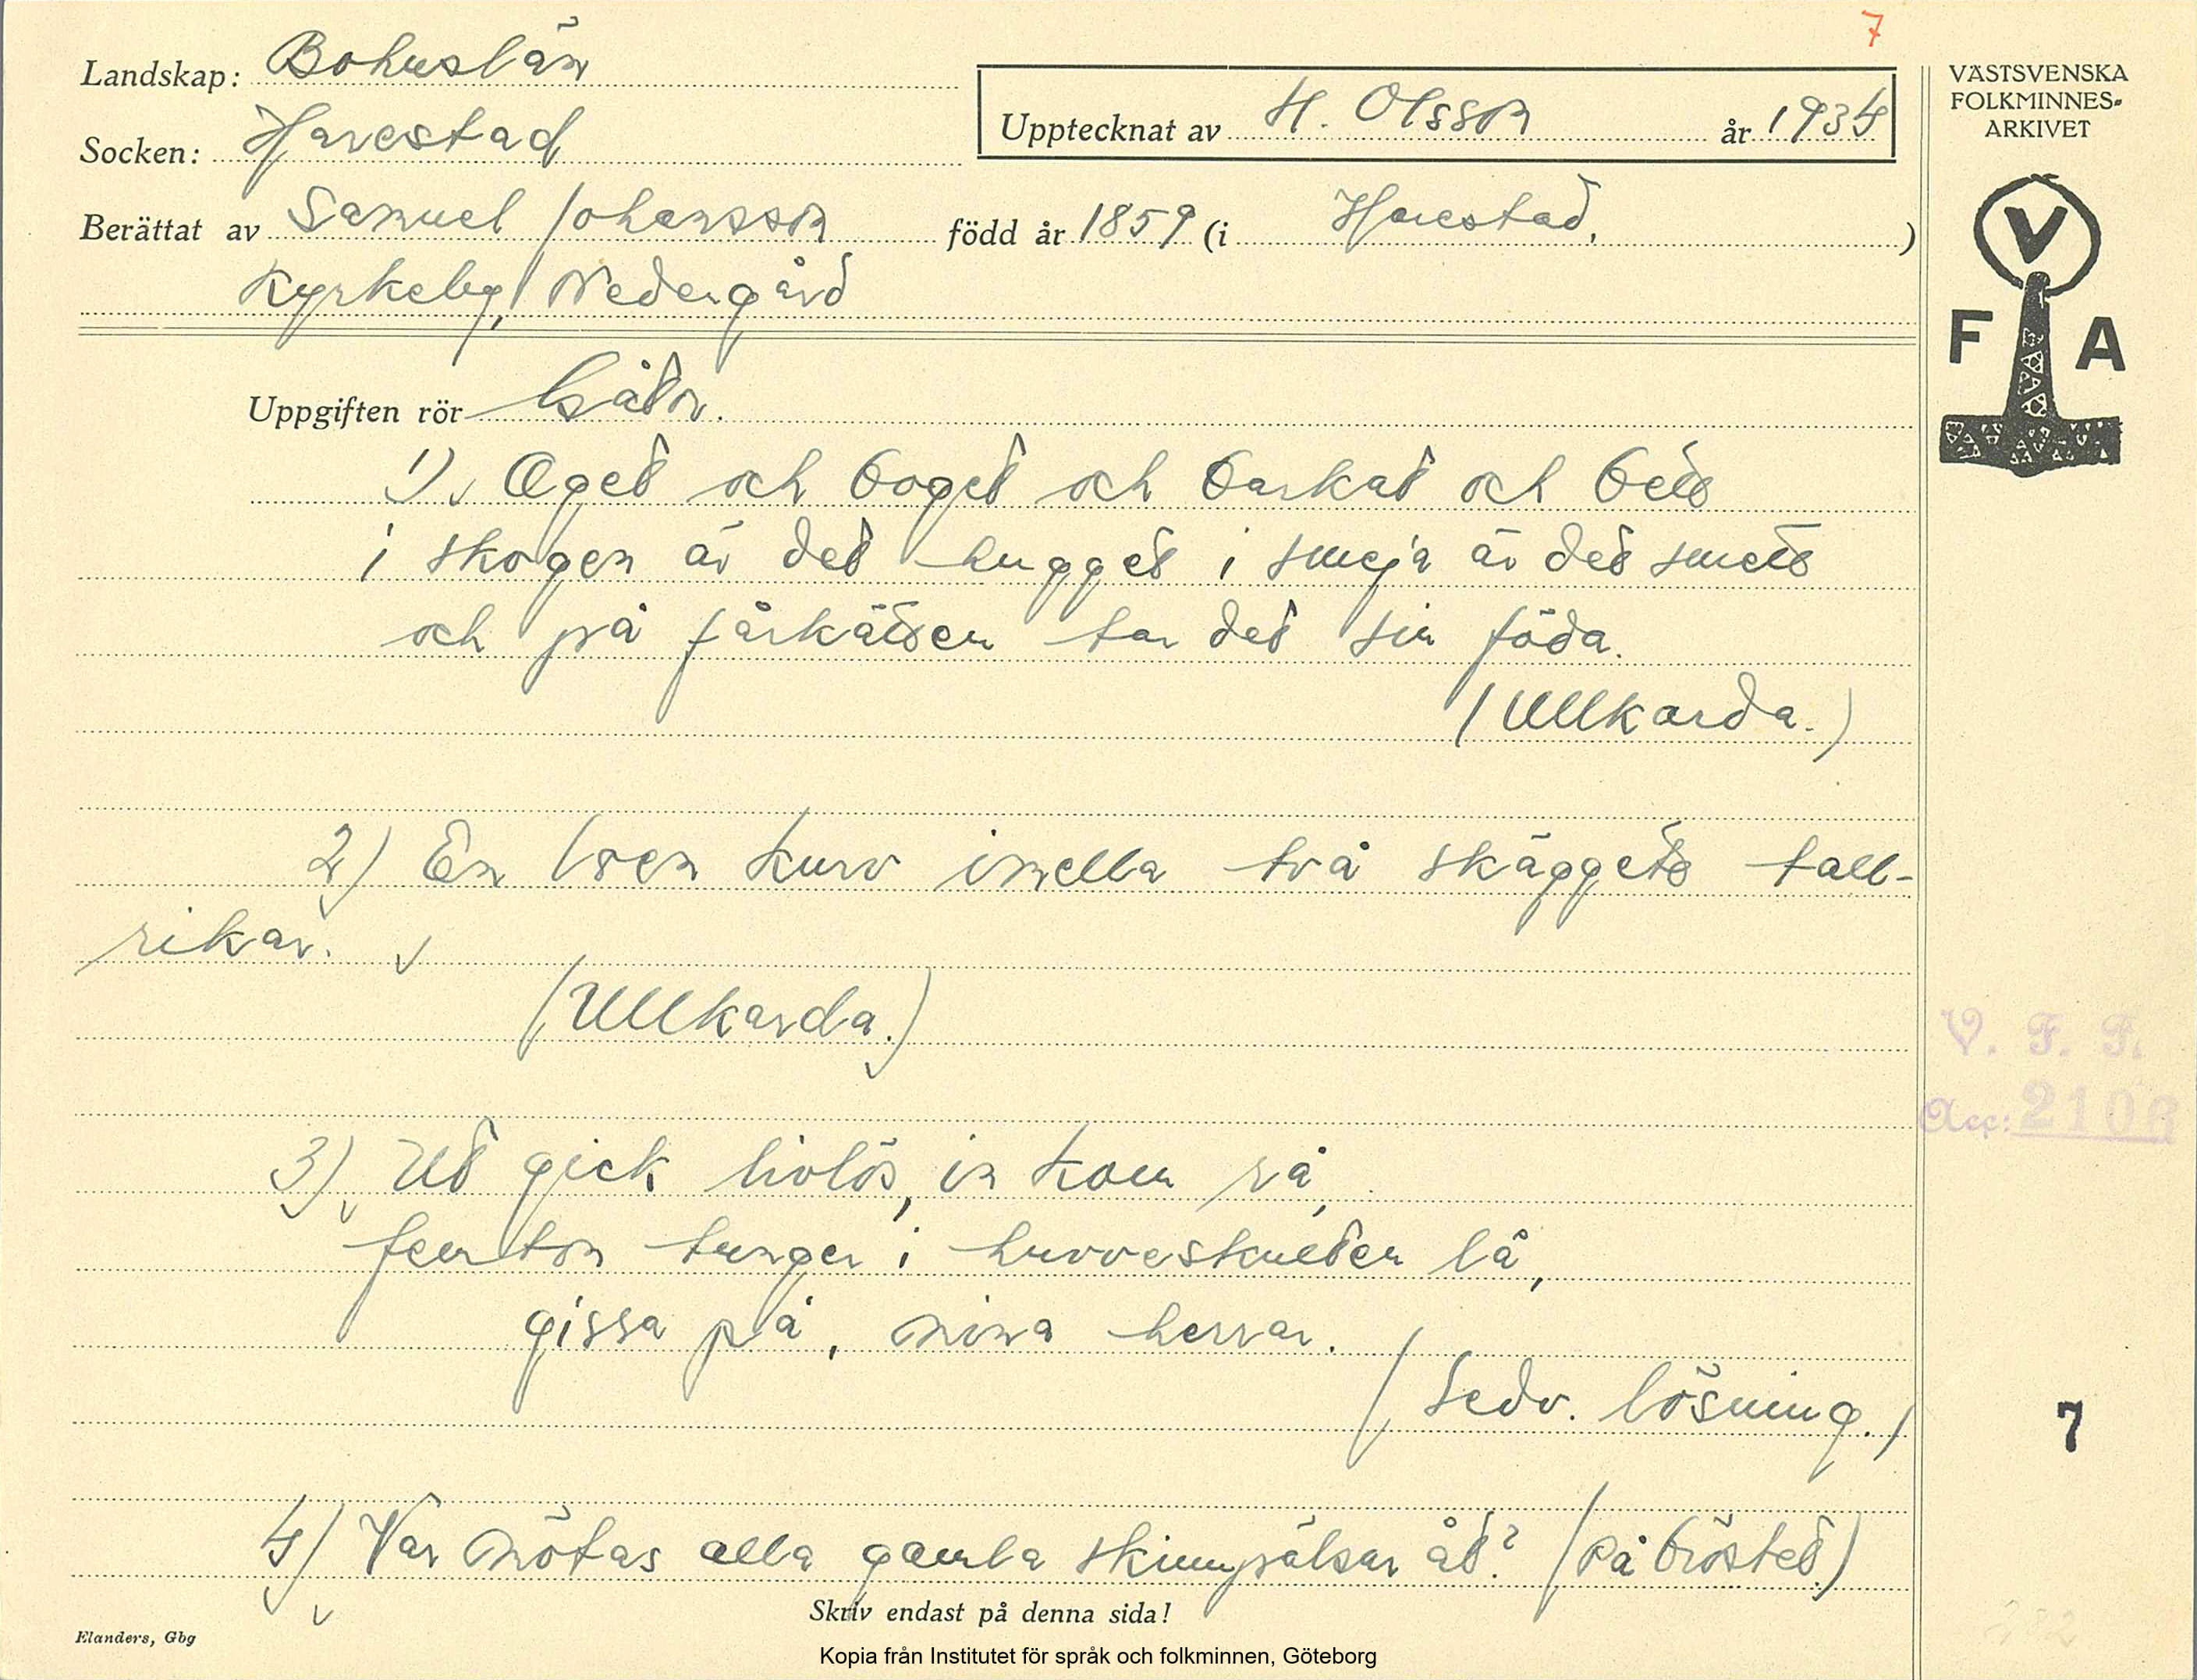 7
Landskap: Bohuslän
Socken: Harestad
Upptecknat av H. Olsson år 1934
Berättat av Samuel Johansson född år 1859 (i Harestad.)
Kyrkeby, Nedergård
Uppgiften rör Gåtor.
1) Öget och boget och barkat och bett
i skogen är det hugget i smeja är det smett
och på fårkätten tar det sin föda.
(Ullkarda.)
2) En loen kurv imella två skäggete tall-
rikar.
(Ullkarda.)
3) Ut gick livlös, in kom rå,
femton tunger i huvveskulten lå,
gissa på, mina herrar.
(Sedv. lösning.)
4) Var mötas alla gamla skinnpälsar åt? (På bröstet)
Skriv endast på denna sida!
Elanders, Gbg
VÄSTSVENSKA
FOLKMINNES-
ARKIVET
V
F A
V. F. F.
Acc: 2106
7
Kopia från Institutet för språk och folkminnen, Göteborg